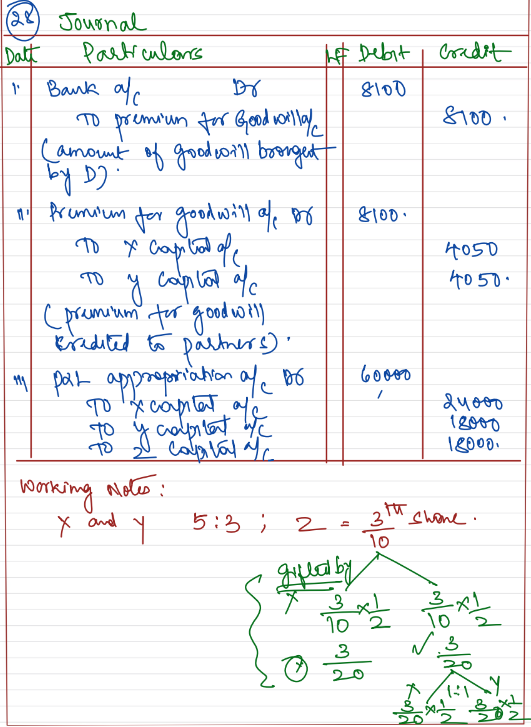 28 Journal
Date Particulars LF Debit Credit
i. Bank a/c Dr 8100
To premium for Goodwill a/c 8100.
(amount of goodwill brought
by D).
ii. Premium for goodwill a/c Dr 8100.
To X Capital a/c 4050
To Y Capital a/c 4050.
(premium for goodwill
credited to partners).
iii P&L appropriation a/c Dr 60000
To X capital a/c 24000
To Y capital a/c 18000
To Z Capital a/c 18000.
Working Notes:
X and Y 5:3 ; Z = 3/10 th share.
gifted by
X 3/10 × 1/2 3/10 × 1/2
X 3/20 ✓ 3/20
X 1:1 Y
3/20 × 1/2 3/20 × 1/2